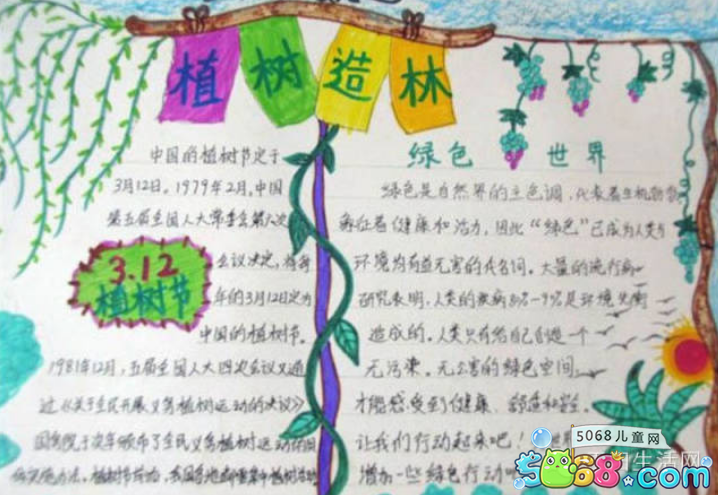 植树造林
中国的植树节定于
3月12日。1979年2月,中国
第五届全国人大常委会第六次
会议决定,将每
年的3月12日定为
中国的植树节。
3.12
植树节
1981年12月,五届全国人大四次会议又通
过《关于全民开展义务植树运动的决议》
国务院于次年颁布了全民义务植树运动的
实施办法。植树节
绿色世界
绿色是自然界的主色调,代表着生机勃勃
着健康和活力,因此“绿色”已成为人类与
环境为有益无害的代名词。大量的流行病
研究表明,人类的疾病80%-9%是环境失衡
造成的。人类只有给自己创造一个
无污染。无公害的绿色空间
才能感受到健康、舒适和安全。
让我们行动起来吧!
增加一些绿色行动
5068儿童网
5068.com
生活网